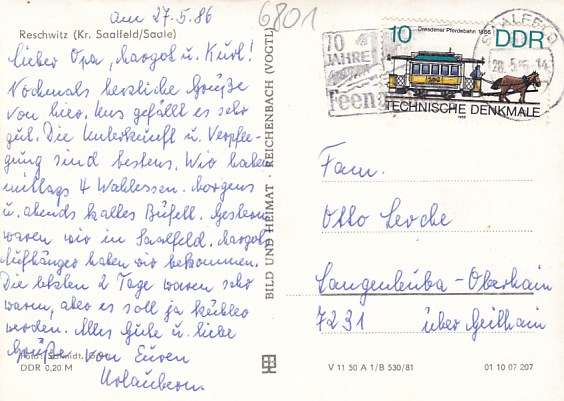 am 27.5.86
6801
Reschwitz (Kr. Saalfeld/Saale)
Lieber Opa, Margot u. Kurt!
Nochmals herzliche Grüße
von hier. Uns gefällt es sehr
gut. Die Unterkunft u. Verpfle-
gung sind bestens. Wir haben
mittags 4 Wahlessen. Morgens
u. abends kaltes Büfett. Gestern
waren wir in Saalfeld. Margots
Aufhänger haben wir bekommen.
Die letzten 2 Tage waren sehr
warm, aber es soll ja kühler
werden. Alles Gute u. liebe
Grüße von Euren
Urlaubern
Foto: Schmidt,
DDR 0,20 M
BILD UND HEIMAT · REICHENBACH (VOGTL)
70
JAHRE
Feen
SAALFELD
28.5.86-14
10
Dresdener Pferdebahn 1886
DDR
TECHNISCHE DENKMALE
1986
Fam.
Otto Lerche
Langenleuba-Oberhain
7231 über Geithain
V 11 50 A 1/B 530/81
01 10 07 207